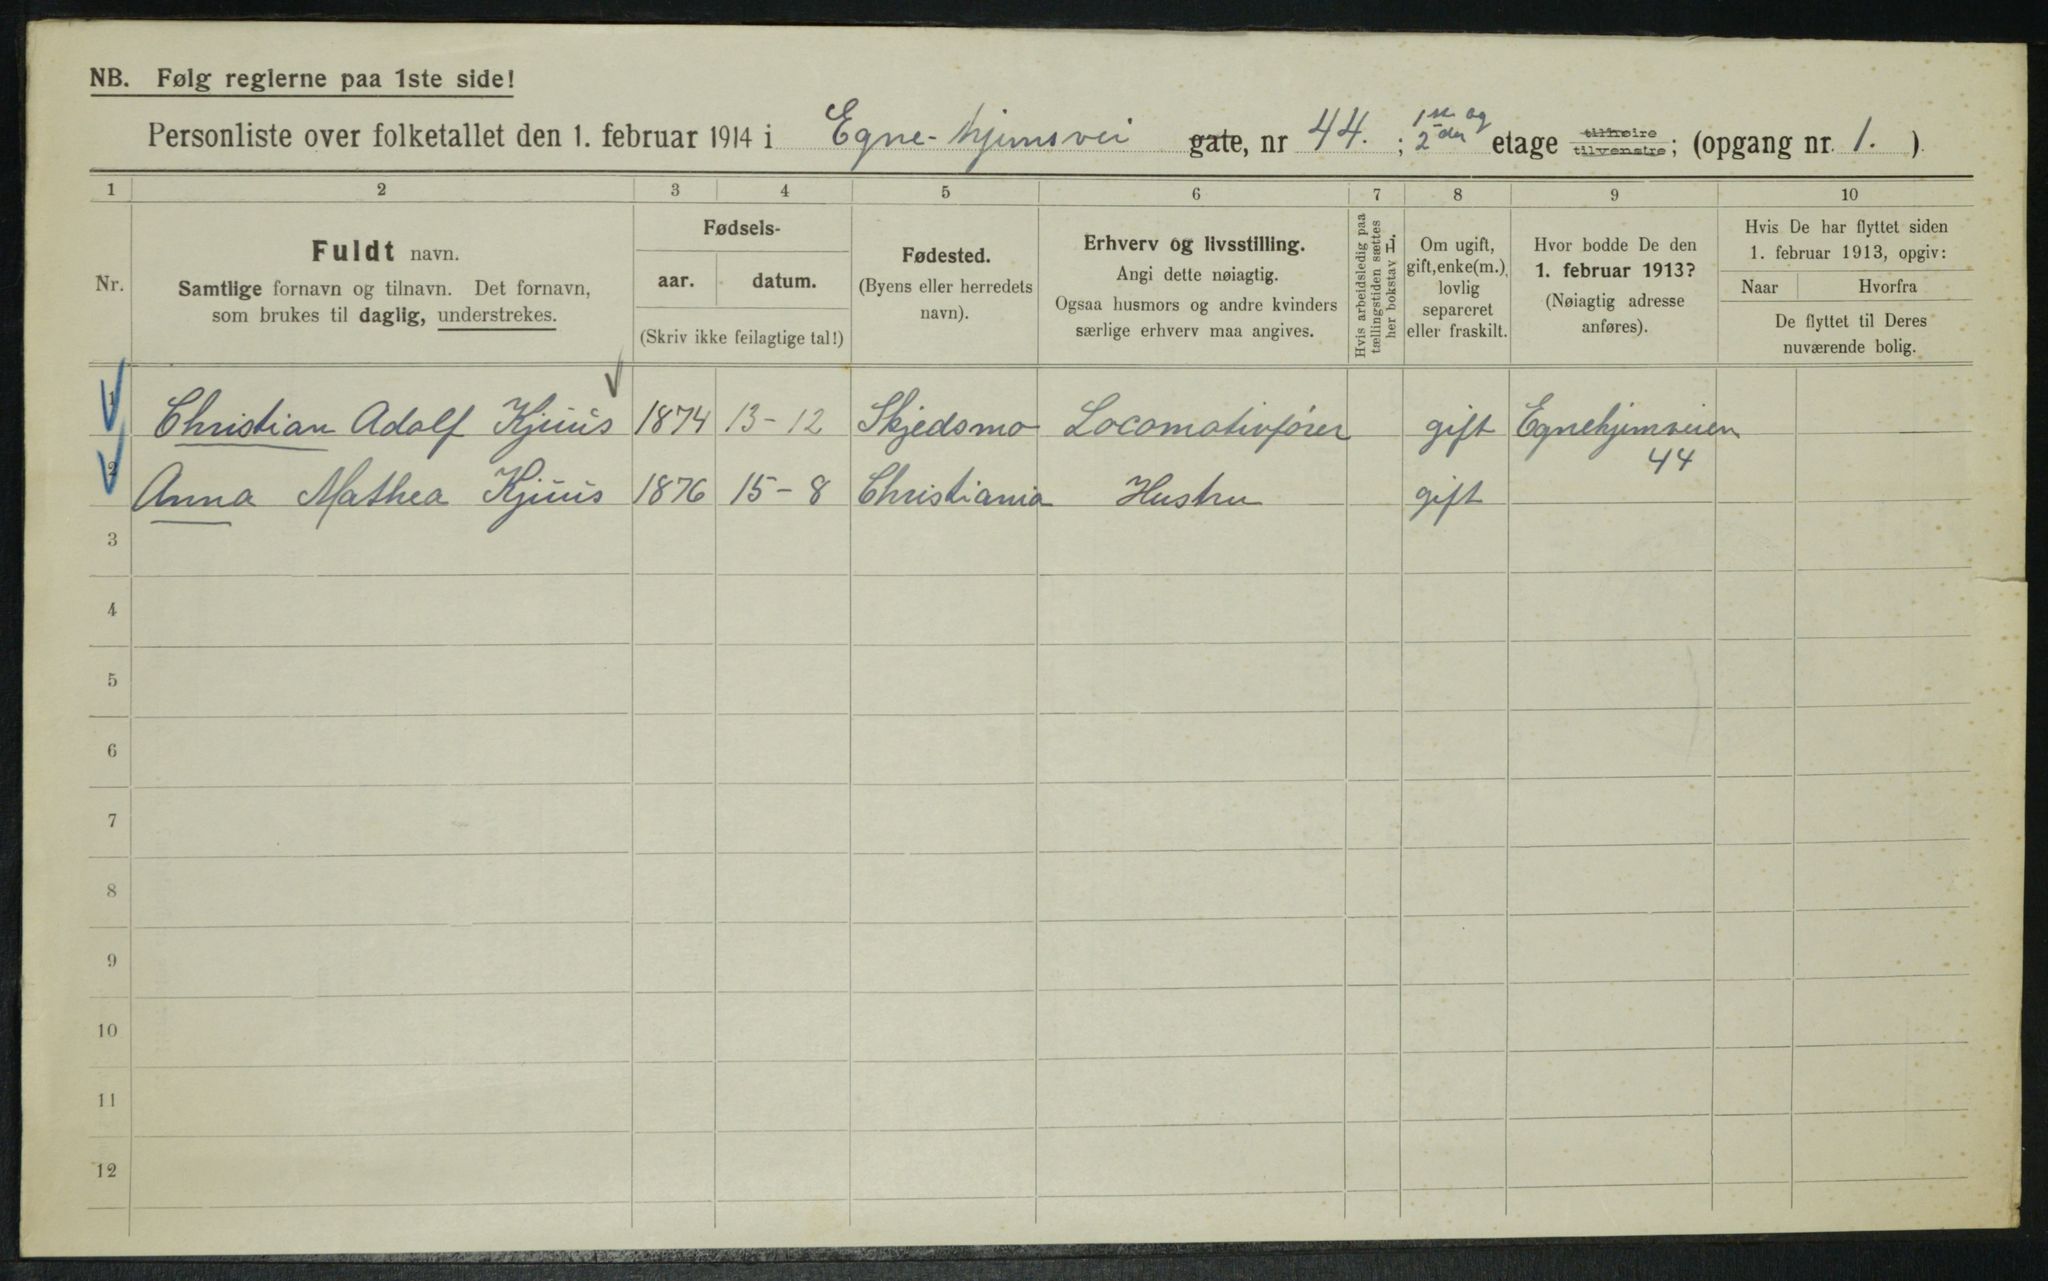 NB. Følg reglerne paa 1ste side!
Personliste over folketallet den 1. februar 1914 i Egne-hjemsvei gate, nr 44. ; 1ste og 2-den etage tilhøire tilvenstre; (opgang nr. 1. )
1 2 3 4 5 6 7 8 9 10
Nr.
Fuldt navn.
Samtlige fornavn og tilnavn. Det fornavn,
som brukes til daglig, understrekes.
Fødsels-
aar. datum.
(Skriv ikke feilagtige tal!)
Fødested.
(Byens eller herredets
navn).
Erhverv og livsstilling.
Angi dette nøiagtig.
Ogsaa husmors og andre kvinders
særlige erhverv maa angives.
Hvis arbeidsledig paa
tællingstiden sættes
her bokstav L.
Om ugift,
gift, enke(m.),
lovlig
separeret
eller fraskilt.
Hvor bodde De den
1. februar 1913?
(Nøiagtig adresse
anføres).
Hvis De har flyttet siden
1. februar 1913, opgiv:
Naar Hvorfra
De flyttet til Deres
nuværende bolig.
1 Christian Adolf Kjuus 1874 13-12 Skjedsmo Locomotivfører gift Egnehjemveien
44
2 Anna Mathea Kjuus 1876 15-8 Christiania Hustru gift
3
4
5
6
7
8
9
10
11
12